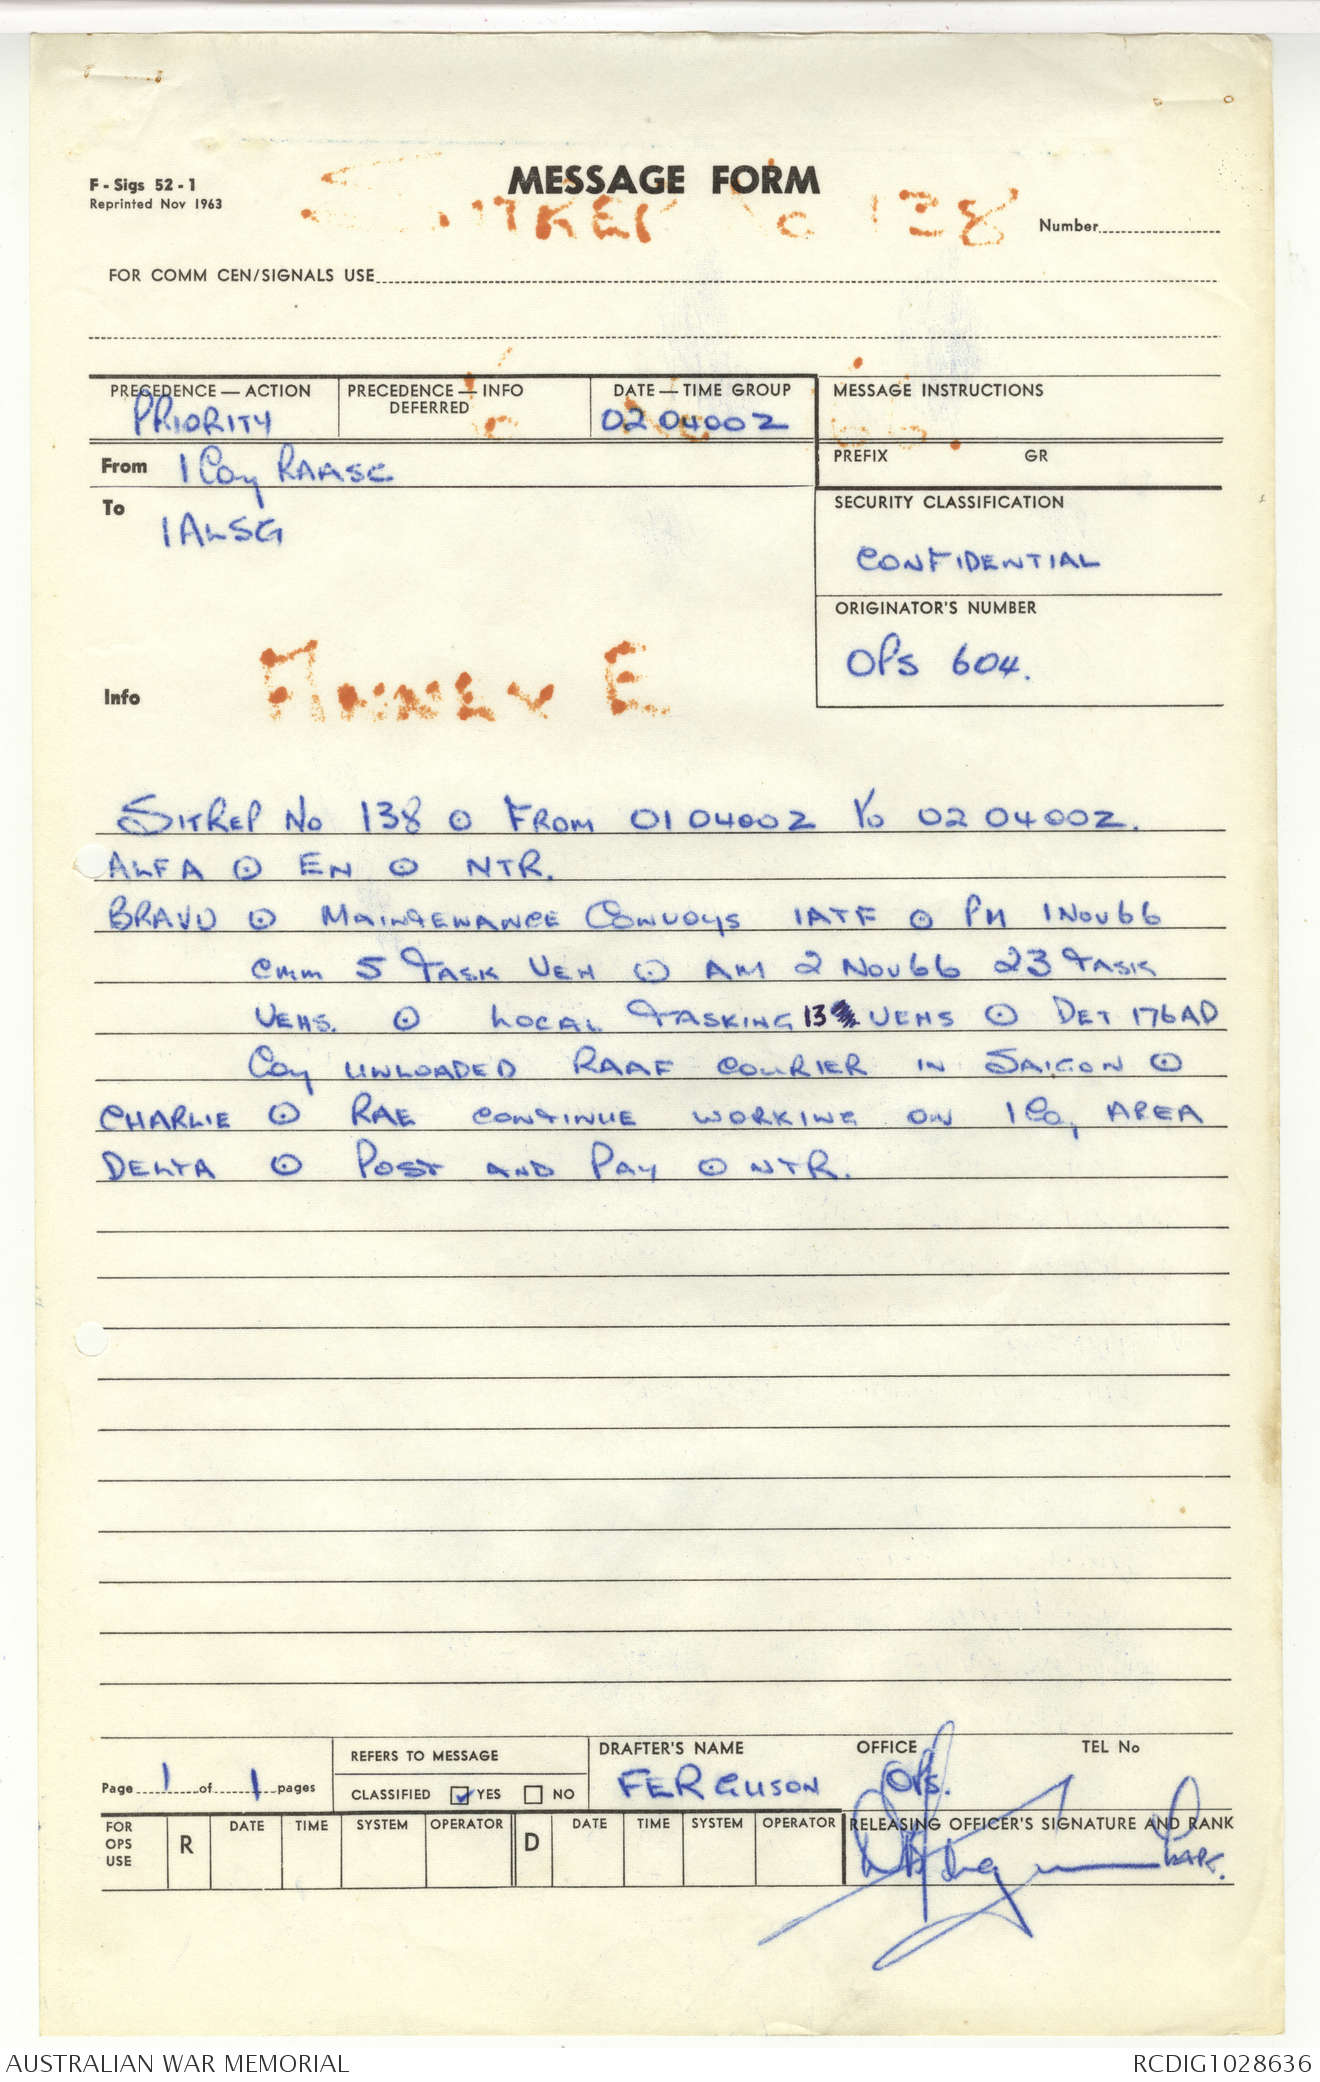 F - Sigs 52 - 1
Reprinted Nov 1963
MESSAGE FORM
SITREP No 138
Number
FOR COMM CEN/SIGNALS USE
PRECEDENCE — ACTION
PRIORITY
PRECEDENCE — INFO
DEFERRED
DATE — TIME GROUP
020400Z
MESSAGE INSTRUCTIONS
From 1 Coy RAASC
PREFIX GR
To
1ALSG
SECURITY CLASSIFICATION
CONFIDENTIAL
ORIGINATOR'S NUMBER
OPS 604.
Info
ANNEX E
SITREP No 138 ⊙ FROM 010400Z TO 020400Z.
ALFA ⊙ EN ⊙ NTR.
BRAVO ⊙ MAINTENANCE CONVOYS 1ATF ⊙ PM 1 NOV 66
CMM 5 TASK VEH ⊙ AM 2 NOV 66 23 TASK
VEHS. ⊙ LOCAL TASKING 13 VEHS ⊙ DET 176 AD
Coy UNLOADED RAAF COURIER IN SAIGON ⊙
CHARLIE ⊙ RAE CONTINUE WORKING ON 1 Coy AREA
DELTA ⊙ POST AND PAY ⊙ NTR.
Page 1 of 1 pages
REFERS TO MESSAGE
CLASSIFIED YES NO
DRAFTER'S NAME
FERGUSON
OFFICE
OPS.
TEL No
FOR
OPS
USE
R DATE TIME SYSTEM OPERATOR D DATE TIME SYSTEM OPERATOR
RELEASING OFFICER'S SIGNATURE AND RANK
CAPT.
AUSTRALIAN WAR MEMORIAL
RCDIG1028636